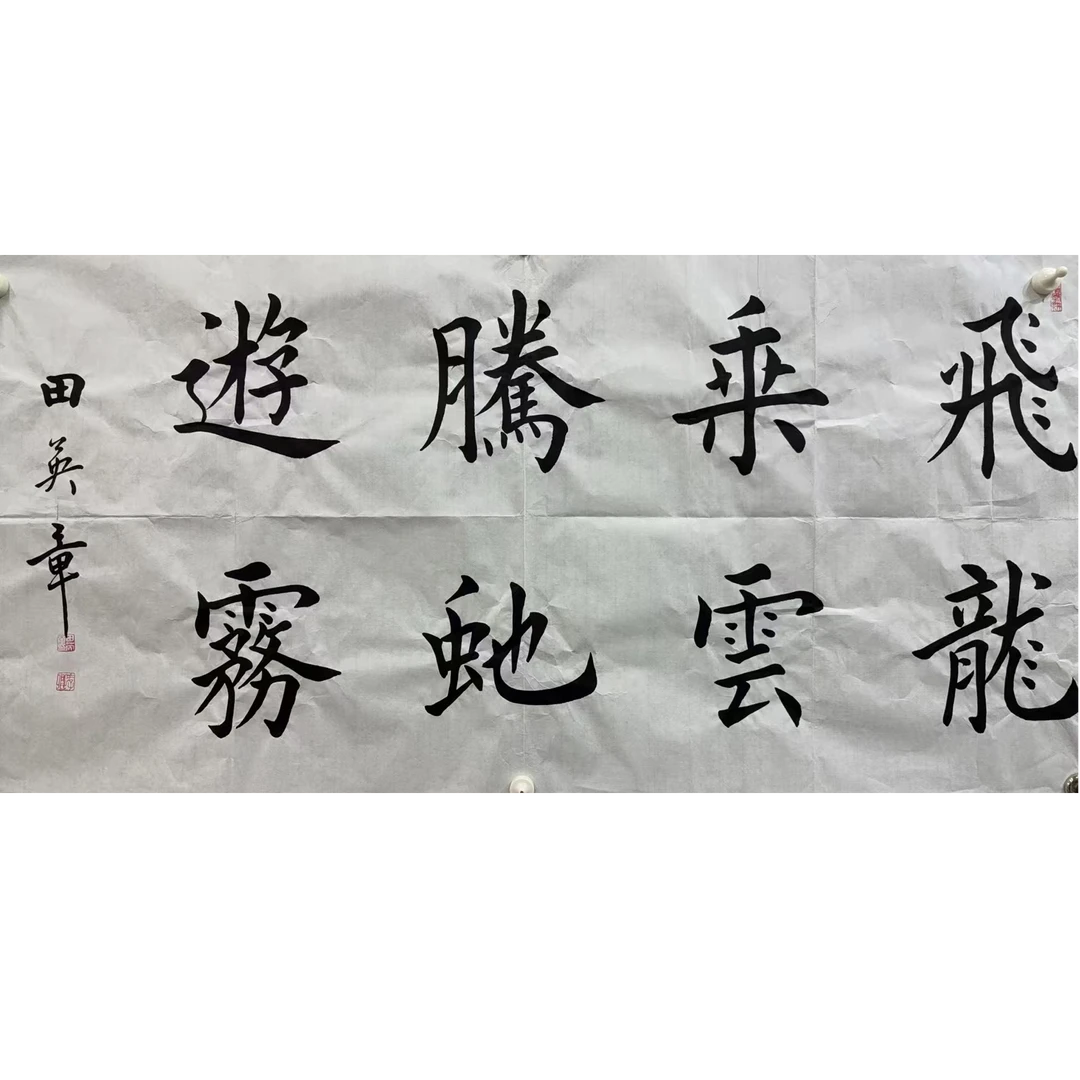 飛龍
乘雲
騰虵
遊霧
田英章